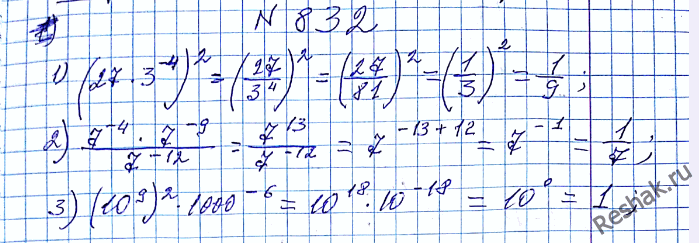 N 832
1) (27 · 3^-4)^2 = (27/3^4)^2 = (27/81)^2 = (1/3)^2 = 1/9 ;
2) 7^-4 · 7^-9 / 7^-12 = 7^13 / 7^-12 = 7^-13+12 = 7^-1 = 1/7 ;
3) (10^9)^2 · 1000^-6 = 10^18 · 10^-18 = 10^0 = 1 ;
Reshak.ru